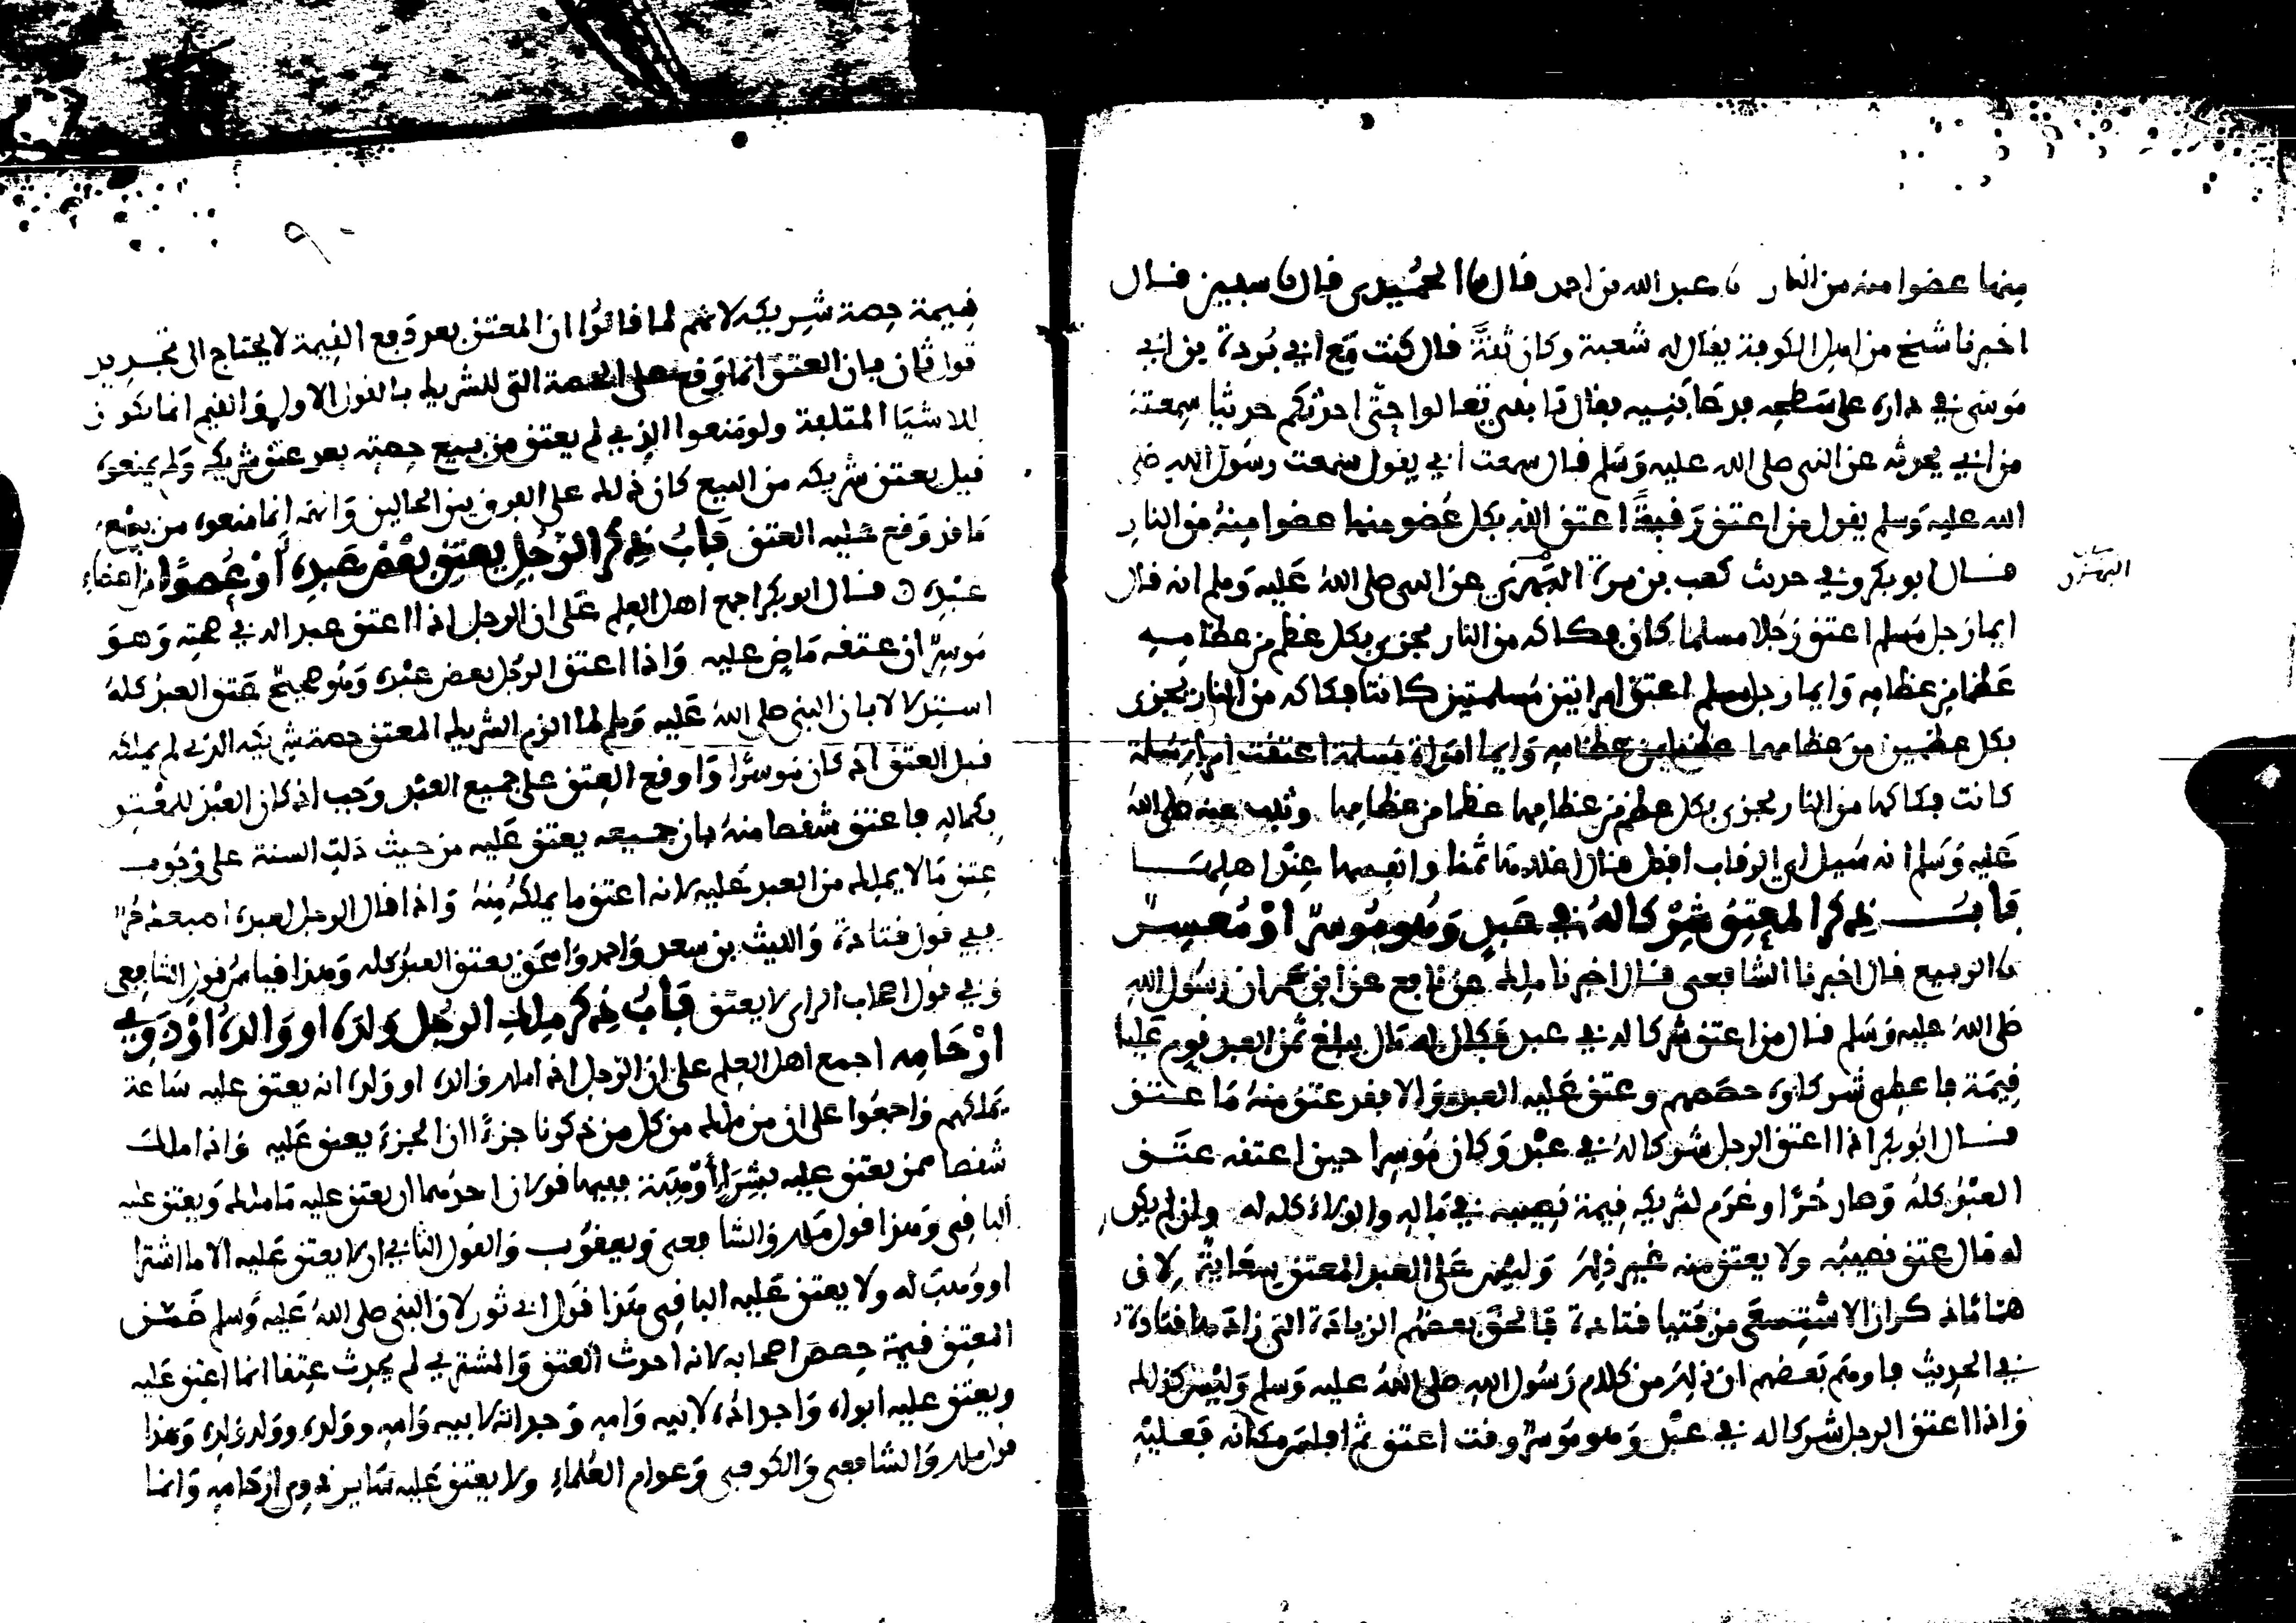 منها عضوا منه من النار نا عبد الله بن احمد قال نا الحميدي قال نا سفين قال
اخبرنا شيخ من اهل الكوفة يقال له شعبة وكان ثقة قال كنت مع ابي بردة بن ابي
موسى في داره على سطحه فدعا بنيه فقال يا بني تعالوا حتى احدثكم حديثا سمعته
من ابي يحدثه عن النبي صلى الله عليه وسلم قال سمعت ابي يقول سمعت رسول الله صلى
الله عليه وسلم يقول من اعتق رقبة اعتق الله بكل عضو منها عضوا منه من النار
قال ابو بكر وفي حديث كعب بن مرة البهزي عن النبي صلى الله عليه وسلم انه قال
البهزي
ايما رجل مسلم اعتق رجلا مسلما كان فكاكه من النار يجزى بكل عظم من عظامه
عظما من عظامه وايما رجل مسلم اعتق امراتين مسلمتين كانتا فكاكه من النار يجزى
بكل عظمين من عظامهما عظما من عظامه وايما امراة مسلمة اعتقت امراة مسلمة
كانت فكاكها من النار يجزى بكل عظم من عظامها عظما من عظامها وثبت عنه صلى الله
عليه وسلم انه سيل اي الرقاب افضل فقال اغلاها ثمنا وانفسها عند اهلها
باب ذكر المعتق شركا له في عبد وهو موسر او معسر
نا الربيع قال اخبرنا الشافعي قال اخبرنا ملك عن نافع عن ابن عمر ان رسول الله
صلى الله عليه وسلم قال من اعتق شركا له في عبد وكان له مال يبلغ ثمن العبد قوم عليه
قيمة فاعطى شركاوه حصصهم وعتق عليه العبد والا فقد عتق منه ما عتق
قال ابو بكر اذا اعتق الرجل شركا له في عبد وكان موسرا حين اعتقه عتق
العبد كله وصار حرا وغرم لشريكه قيمة نصيبه في ماله والولاء كله له وان لم يكن
له مال عتق نصيبه ولا يعتق منه غير ذلك وليس على العبد المعتق سعاية لان
هماما ذكر ان الاستسعى من فتيا قتادة فالحق بعضهم الزيادة التي زادها قتادة
في الحديث فاوهم بعضهم ان ذلك من كلام رسول الله صلى الله عليه وسلم وليس كذلك
واذا اعتق الرجل شركا له في عبد وهو موسر وقت اعتق ثم افلس مكانه فعليه
قيمة حصة شريكه لانهم لما قالوا ان المعتق بعد دفع القيمة لا يحتاج الى تجديد
قول ثان بان العتق انما وقع على الحصة التي للشريك بالقول الاول والقيم انما تكون
للاشيا المتلفة ولو منعوا الذي لم يعتق من بيع حصته بعد عتق شريكه ولم يمنعوه
قبل يعتق شريكه من البيع كان ذلك على الفرق بين الحالين وانه انما منعوه من بيع
ما قد وقع عليه العتق باب ذكر الرجل يعتق بعض عبده او عضوا من اعضاء
عبده قال ابو بكر اجمع اهل العلم على ان الرجل اذا اعتق عبدا له في صحته وهو
موسر ان عتقه ماض عليه واذا اعتق الرجل بعض عبده وهو صحيح عتق العبد كله
استدلالا بان النبي صلى الله عليه وسلم لما الزم الشريك المعتق حصة شريكه الذي لم يملكه
قبل العتق اذ كان موسرا واوقع العتق على جميع العبد وجب اذ كان العبد للمعتق
بكماله فاعتق شقصا منه بان جميعه يعتق عليه من حيث دلت السنة على وجوب
عتق ما لا يملك من العبد عليه لانه اعتق ما يملكه منه واذا قال الرجل لعبده اصبعك حر
ففي قول قتادة والليث بن سعد واحمد واسحق يعتق العبد كله وهذا قياس قول الشافعي
وفي قول اصحاب الراي لا يعتق باب ذكر ملك الرجل ولده او والده او ذوي
ارحامه اجمع اهل العلم على ان الرجل اذا ملك والده او ولده انه يعتق عليه ساعة
يملكهم واجمعوا على ان من ملك من كل من ذكرنا جزءا ان الجزء يعتق عليه واذا ملك
شقصا ممن يعتق عليه بشراء او هبة ففيها قولان احدهما ان يعتق عليه ما ملك ويعتق عليه
الباقي وهذا قول ملك والشافعي ويعقوب والقول الثاني ان لا يعتق عليه الا ما اشترا
او وهب له ولا يعتق عليه الباقي هذا قول ابي ثور لان النبي صلى الله عليه وسلم ضمن
المعتق قيمة حصص اصحابه لانه احدث العتق والمشتري لم يحدث عتقا انما اعتق عليه
ويعتق عليه ابواه واجداده لابيه وامه وجداته لابيه وامه وولده وولد ولده وهذا
قول ملك والشافعي والكوفي وعوام العلماء ولا يعتق عليه ساير ذوي ارحامه وانما